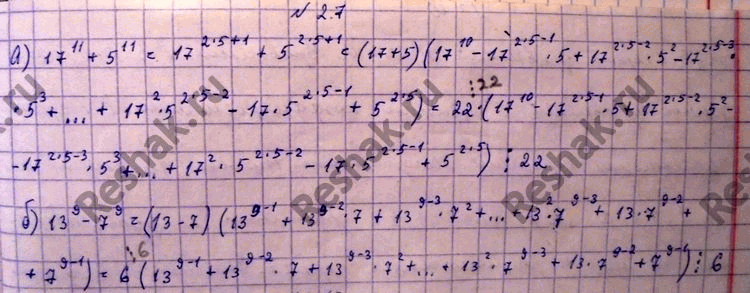 № 2.7
а) 17^11 + 5^11 = 17^(2·5+1) + 5^(2·5+1) = (17+5)(17^10 - 17^(2·5-1) · 5 + 17^(2·5-2) · 5^2 - 17^(2·5-3) ·
· 5^3 + ... + 17^2 · 5^(2·5-2) - 17 · 5^(2·5-1) + 5^(2·5)) = 22 ⋮22 · (17^10 - 17^(2·5-1) · 5 + 17^(2·5-2) · 5^2 -
- 17^(2·5-3) · 5^3 + ... + 17^2 · 5^(2·5-2) - 17 · 5^(2·5-1) + 5^(2·5)) ⋮ 22
б) 13^9 - 7^9 = (13-7)(13^(9-1) + 13^(9-2) · 7 + 13^(9-3) · 7^2 + ... + 13^2 · 7^(9-3) + 13 · 7^(9-2) +
+ 7^(9-1)) = 6 ⋮6 (13^(9-1) + 13^(9-2) · 7 + 13^(9-3) · 7^2 + ... + 13^2 · 7^(9-3) + 13 · 7^(9-2) + 7^(9-1)) ⋮ 6
Reshak.ru
Reshak.ru
Reshak.ru
Reshak.ru